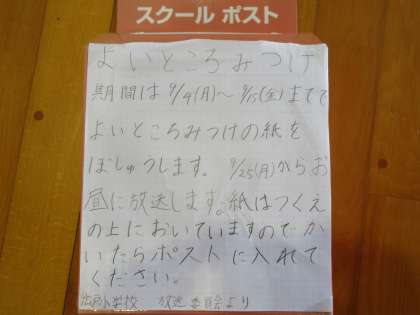 スクール ポスト
よいところみつけ
期間は9/4(月)～9/15(金)までで
よいところみつけの紙を
ぼしゅうします。9/25(月)からお
昼に放送します。紙はつくえ
の上においていますのでか
いたらポストに入れて
ください。
小学校 放送委員会より